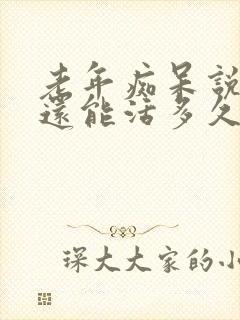 老年痴呆說
還能活多久
琛大大家的小